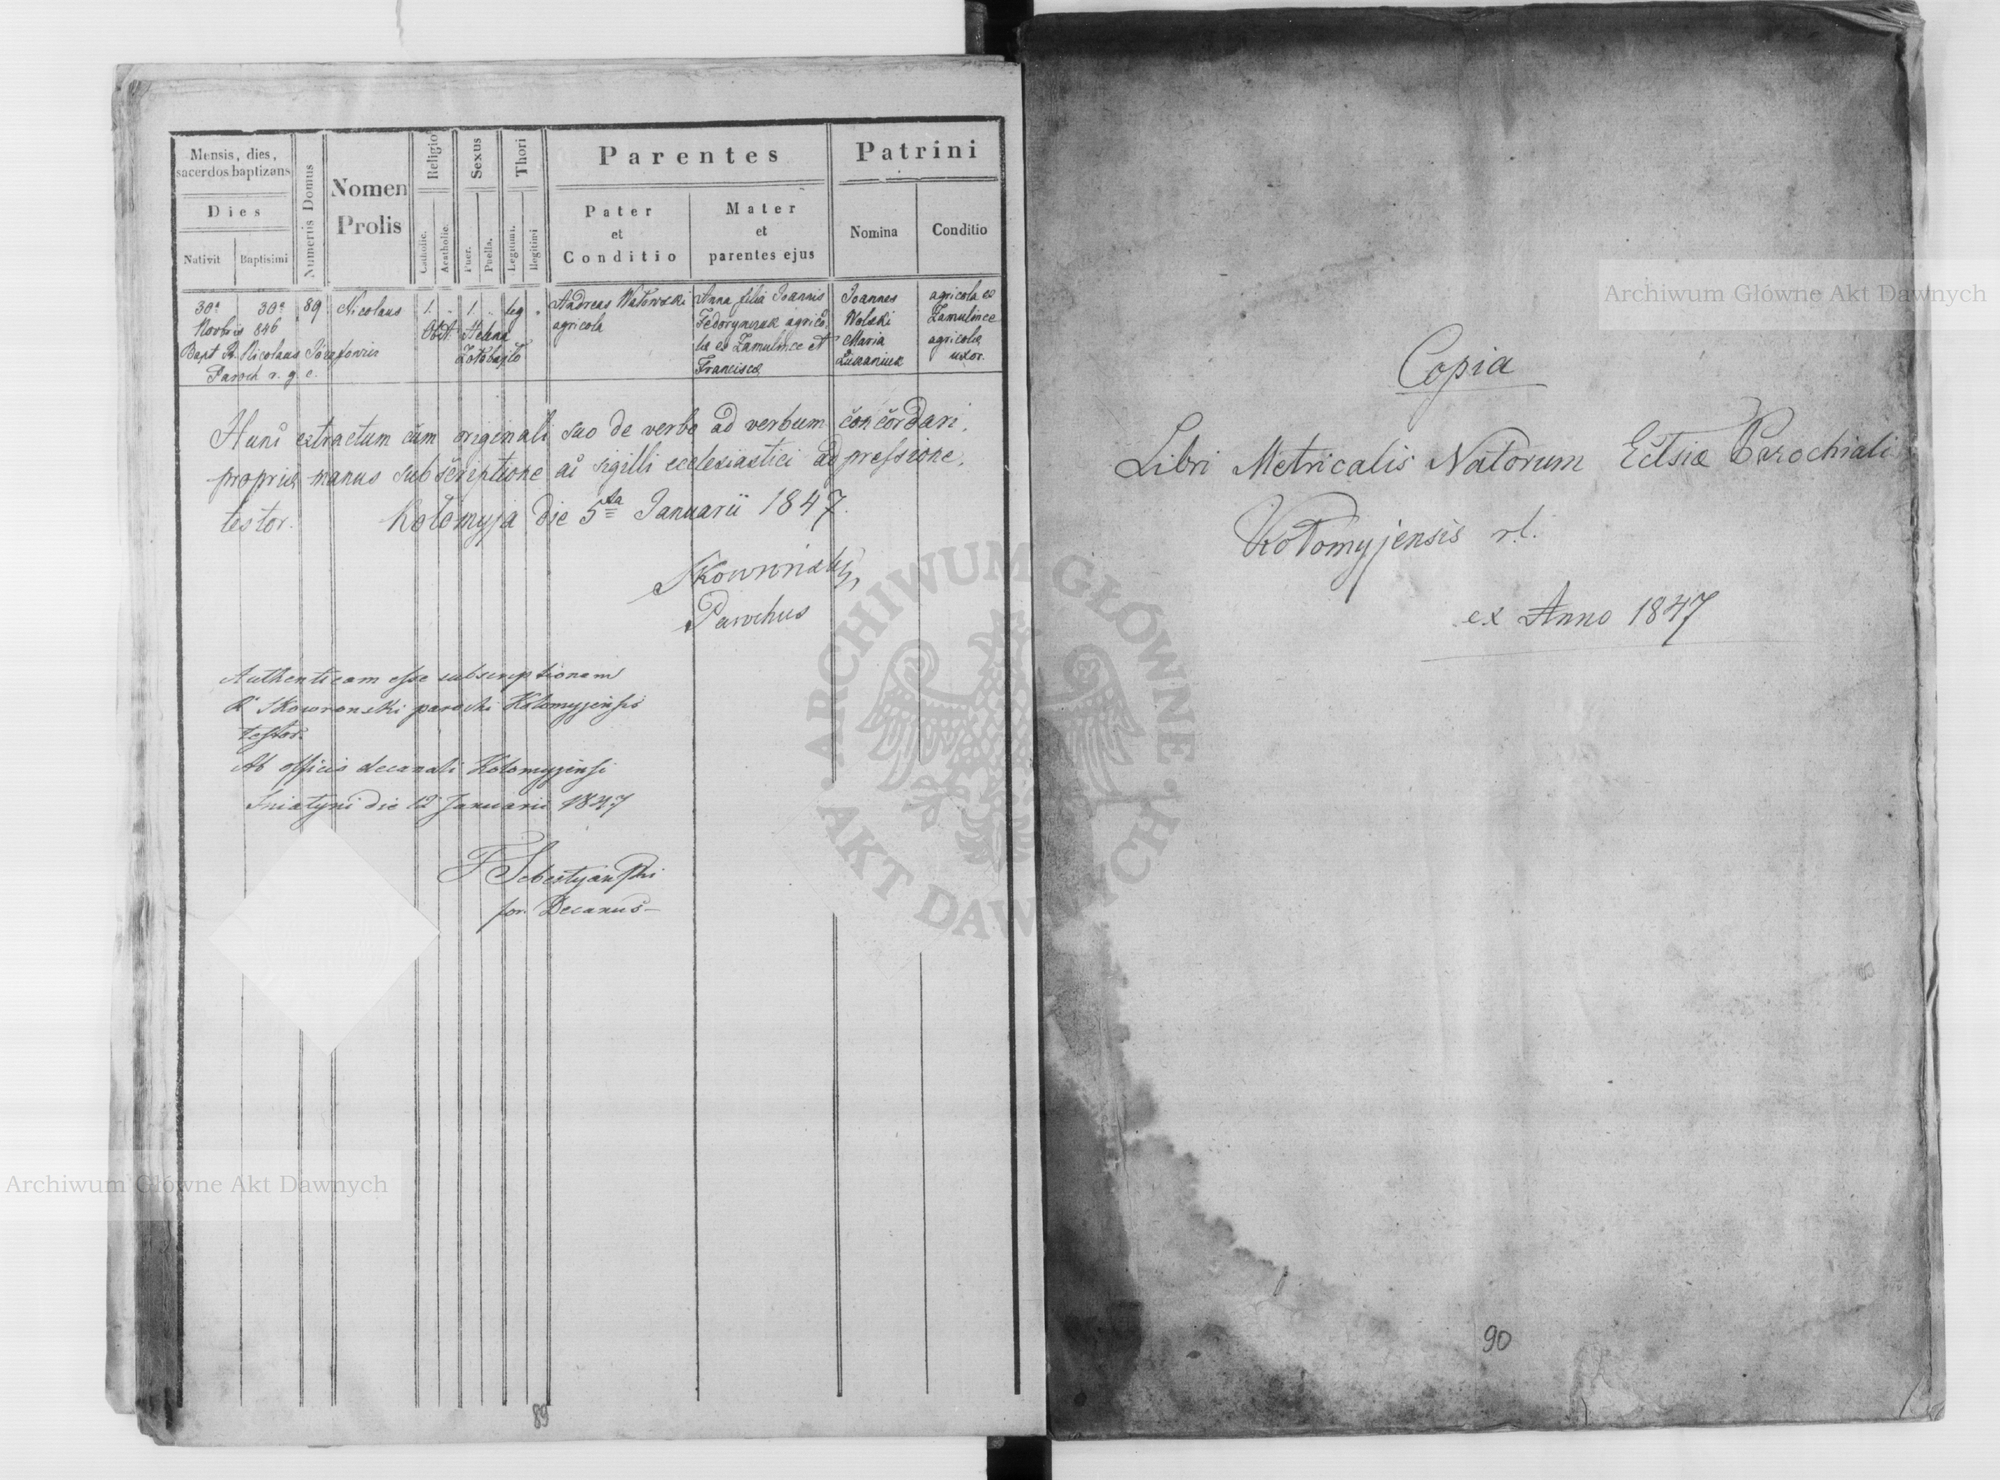 Mensis, dies,
sacerdos baptizans
Dies
Nativit
Baptisimi
Numerus Domus
Nomen
Prolis
Religio
Catholic.
Acatholic.
Sexus
Puer.
Puella.
Thori
Legitimi.
Illegitimi
Parentes
Pater
et
Conditio
Mater
et
parentes ejus
Patrini
Nomina
Conditio
30a 30a 89 Nicolaus 1. . 1. . leg .
9bris 846
Bapt R. Nicolaus
Paroch r. g. c.
Obst. Helena
Andreas
agricola
Anna filia Joannis
Fedorynczuk agrico
la ex Zamulince et
Franciscæ
Joannes
Wolski
Maria
Lukaniuk
agricola ex
Zamulince
agricolæ
uxor.
Hunc extractum cum originali suo de verbo ad verbum concordari,
propriæ manus subscriptione ac sigilli ecclesiastici adpressione,
testor. Kołomyja die 5ta Januarii 1847.
Skowroński
Parochus
Authenticam esse subscriptionem
R Skowronski parochi Kolomyjensis
testor.
Ab officio decanali Kolomyjensi
Sniatyni die 12 Januarii 1847
for. Decanus
89
Copia
Libri Metricalis Natorum Eclsiæ Parochiali
Kołomyjensis r. l.
ex Anno 1847
90
Archiwum Główne Akt Dawnych
Archiwum Główne Akt Dawnych
ARCHIWUM GŁÓWNE
AKT DAWNYCH